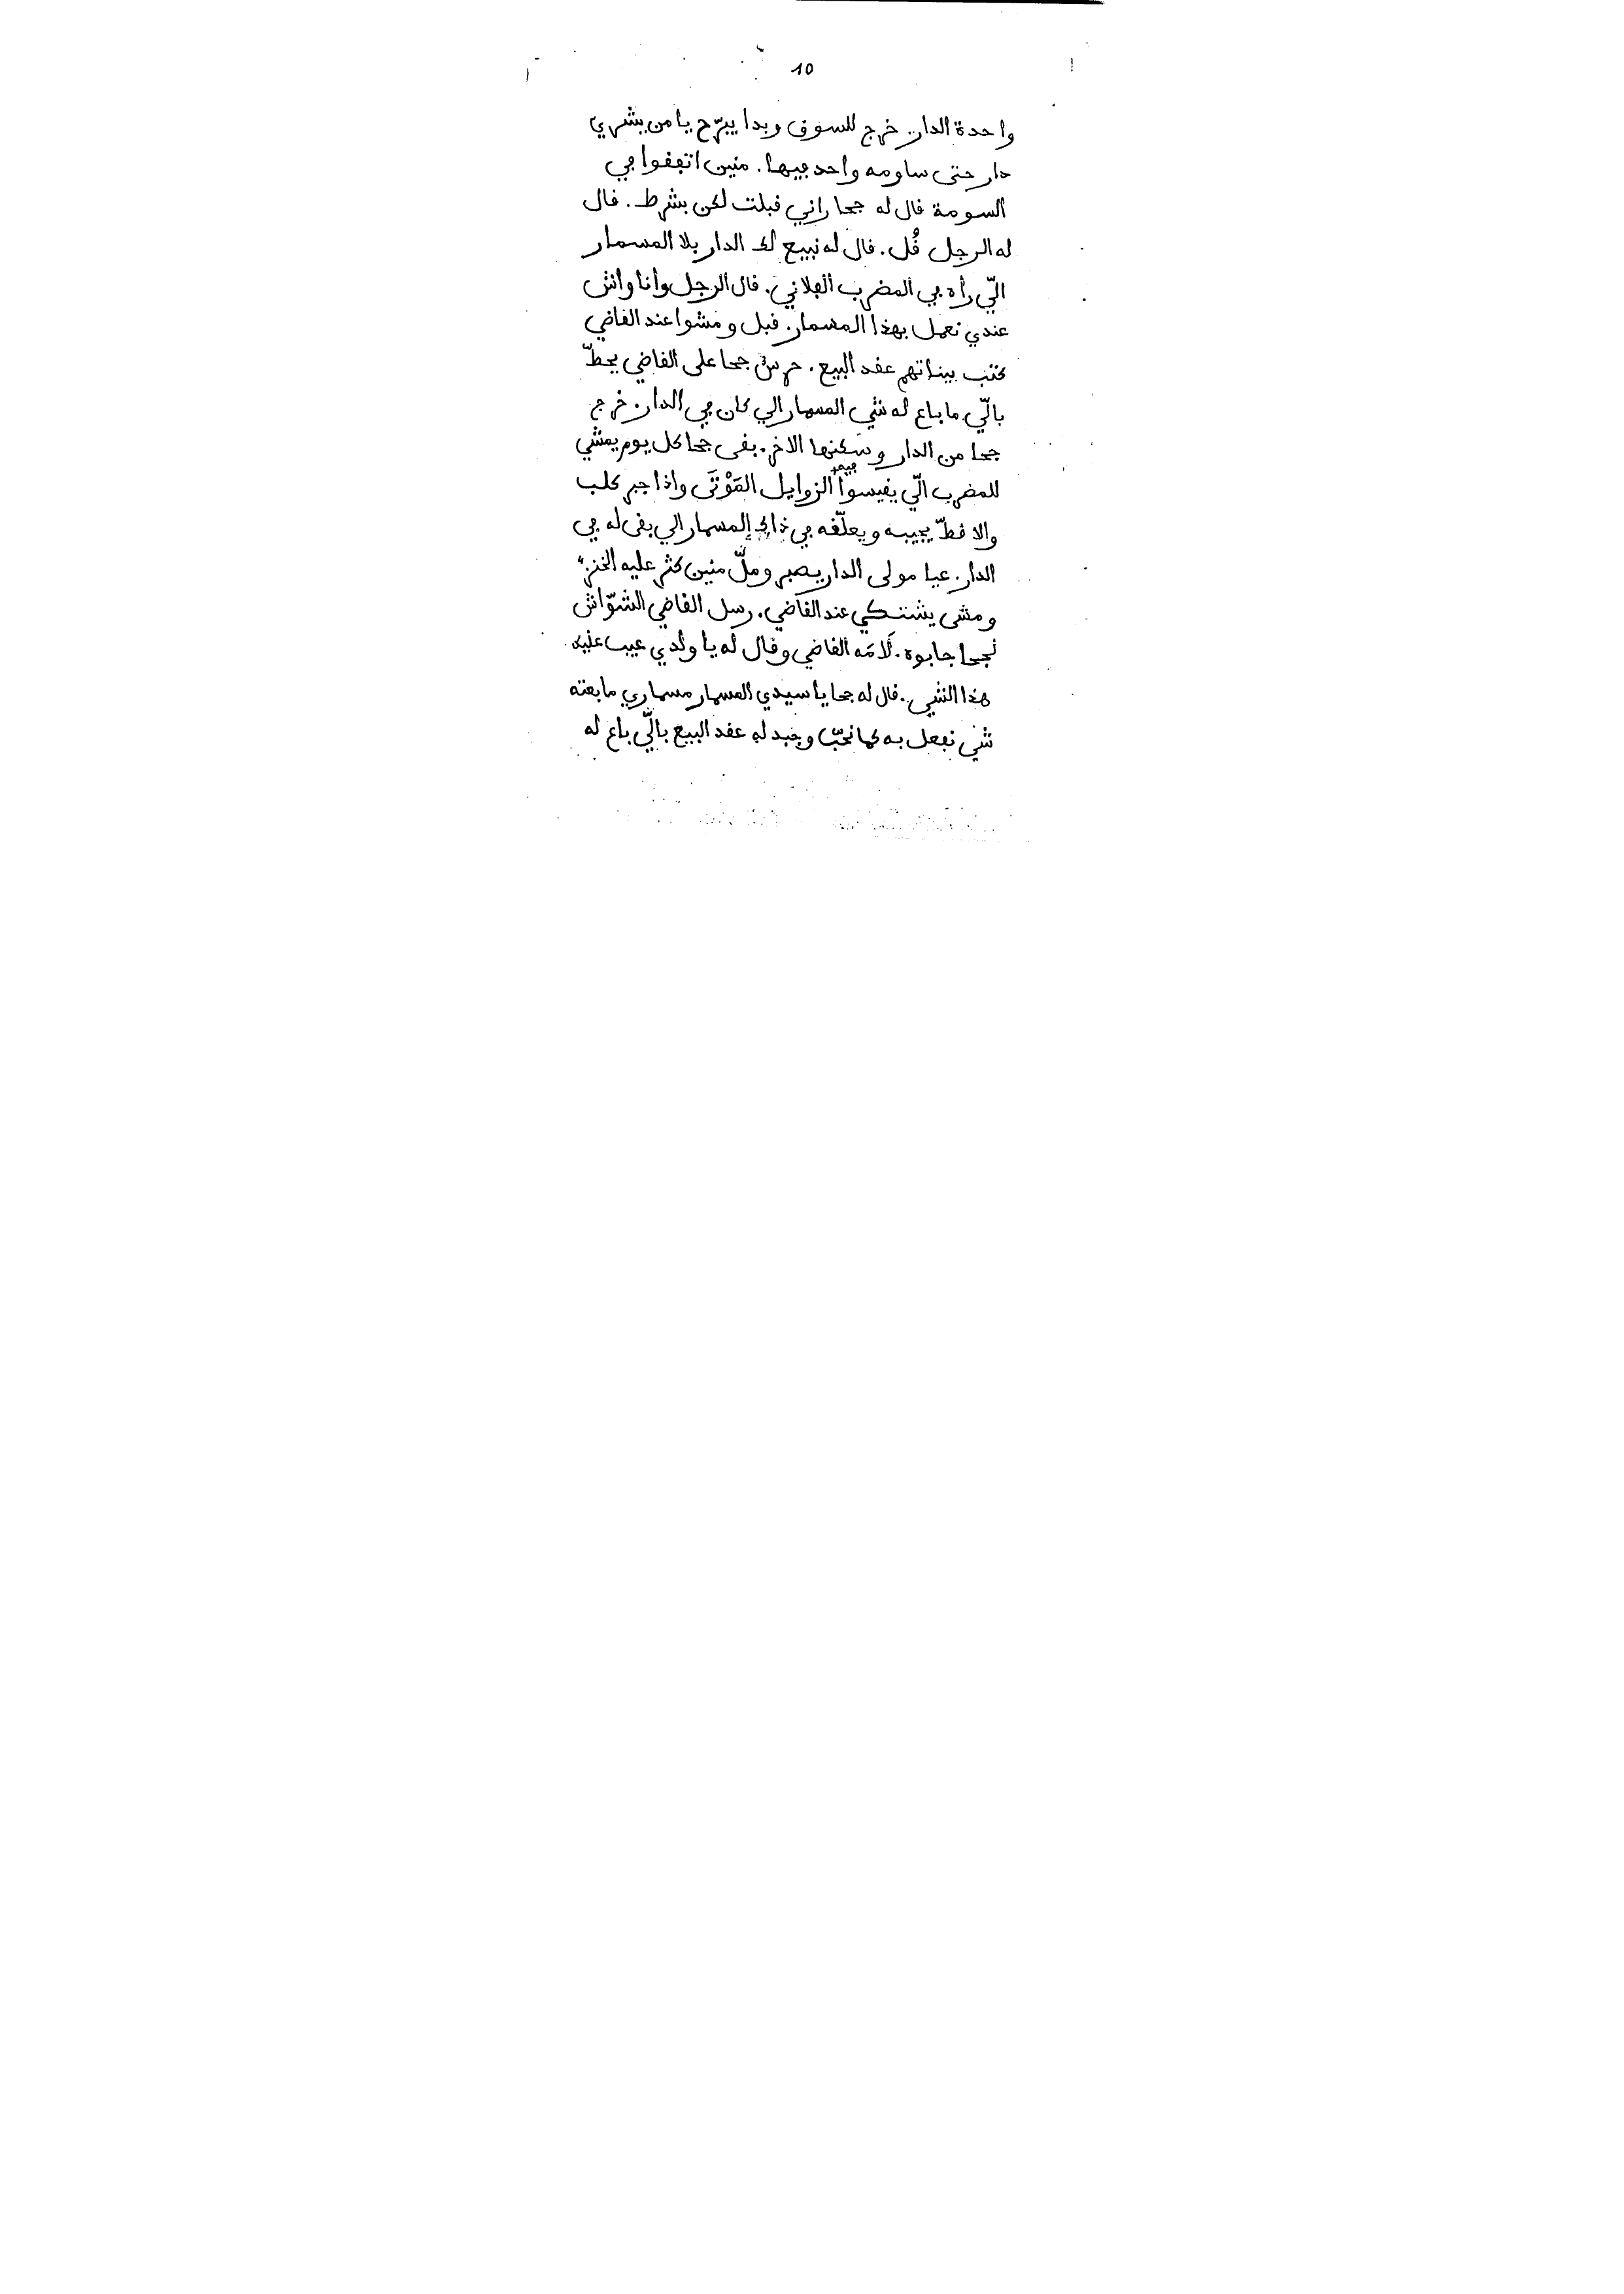 10
واحدة الدار. خرج للسوڧ وبدا يبرّح يا من يشري
دار حتى ساومه واحد ڢيها. منين اتڢڧوا ڢي
السومة ڧال له جحا راني ڧبلت لكن بشرط. ڧال
له الرجل ڧُل. ڧال له نبيع لك الدار بلا المسمار
الّي راه ڢي المضرب الڢلاني. ڧال الرجل وانا واش
عندي نعمل بهذا المسمار. ڧبل ومشوا عند الڧاضي
كتب بيناتهم عڧد البيع. حرش جحا على الڧاضي يحطّ
بالّي ما باع له شي المسمار الي كان ڢي الدار. خرج
جحا من الدار وسكنها الاخر. بڧى جحا كل يوم يمشي
للمضرب الّي يڧيسوا ڢيه الزوايل المَوْتَى واذا جبر كلب
والا ڧطّ يجيبه ويعلّڧه ڢي ذاك المسمار الي بڧى له ڢي
الدار. عيا مولى الدار يصبر وملّ منين كثر عليه الخنز
ومشى يشتكي عند الڧاضي. رسل الڧاضي الشوّاش
لجحا جابوه. لَامَه الڧاضي وڧال له يا ولدي عيب عليك
هذا الشي. ڧال له جحا يا سيدي المسمار مسماري ما بعته
شي نڢعل به كما نحبّ وجبد له عڧد البيع بالّي باع له